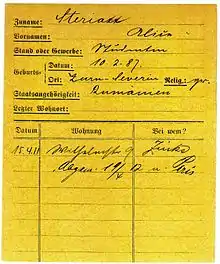 Zuname: Steriadi
Vornamen:
Stand oder Gewerbe: Studentin
Geburts- Datum: 10.2.87.
Ort: Turn-Severin Relig.:
Staatsangehörigkeit: Rumänien
Letzter Wohnort:
Datum Wohnung Bei wem?
15.4.11 9
19/4 12 n. Paris